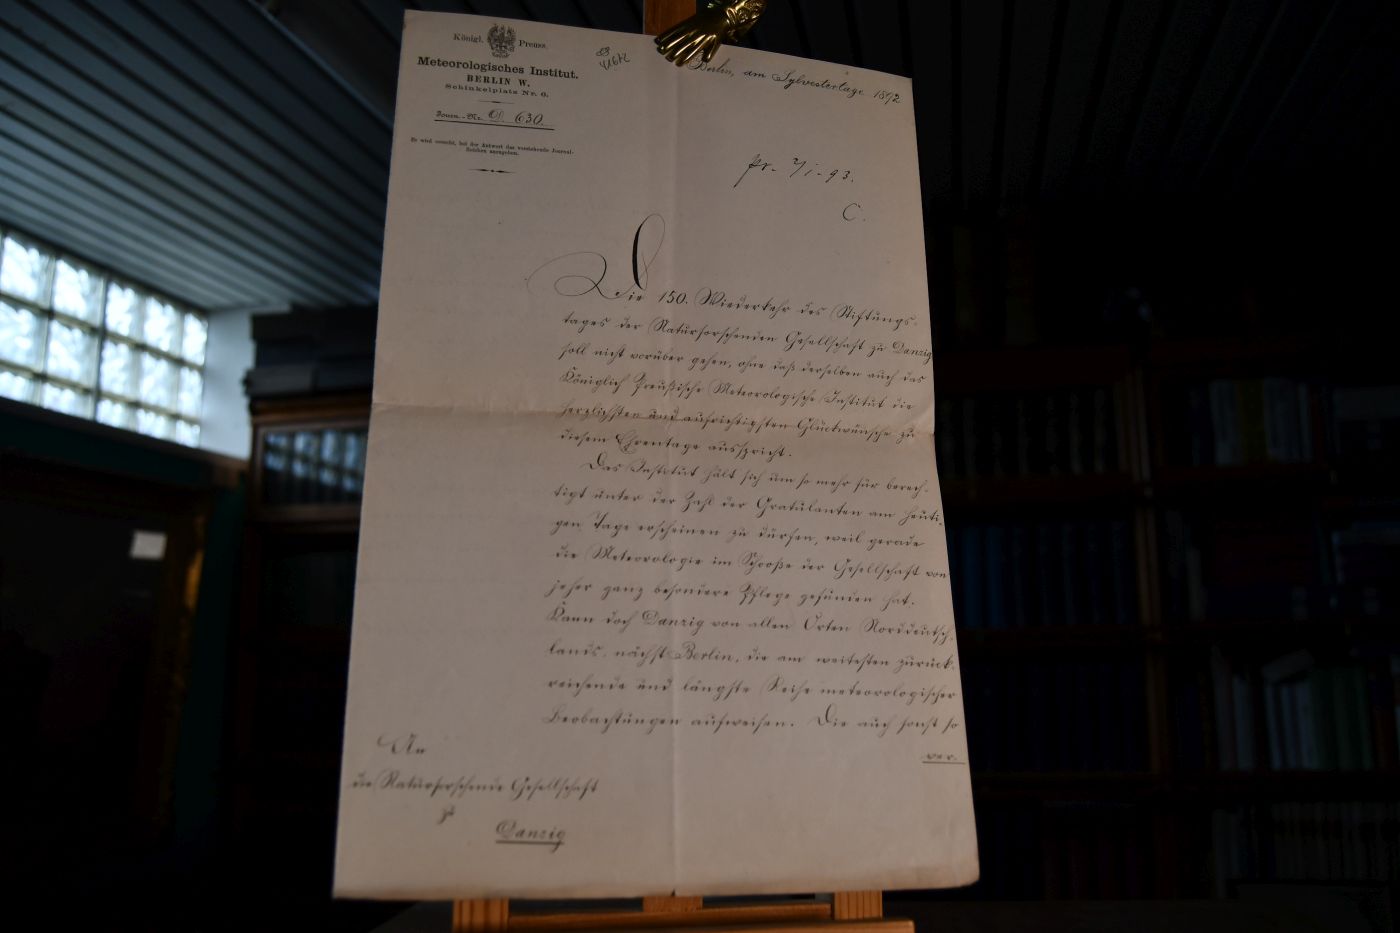 Königl. Preuss.
Meteorologisches Institut.
BERLIN W.
Schinkelplatz Nr. 6.
Journ.-Nr. D. 630.
Es wird ersucht, bei der Antwort das vorstehende Journal-
Zeichen anzugeben.
Berlin, am Sylvestertage 1892
pr. 2/1-93.
C.
Die 150. Wiederkehr des Stiftungs-
tages der Naturforschenden Gesellschaft zu Danzig
soll nicht vorüber gehen, ohne daß derselben auch das
Königlich Preußische Meteorologische Institut die
herzlichsten und aufrichtigsten Glückwünsche zu
diesem Ehrentage ausspricht.
Das Institut hält sich um so mehr für berech-
tigt unter der Zahl der Gratulanten am heuti-
gen Tage erscheinen zu dürfen, weil gerade
die Meteorologie im Schooße der Gesellschaft von
jeher ganz besondere Pflege gefunden hat.
Kann doch Danzig von allen Orten Norddeutsch-
lands, nächst Berlin, die am weitesten zurück-
reichende und längste Reihe meteorologischer
Beobachtungen aufweisen. Die auch sonst so
ver.
An
die Naturforschende Gesellschaft
zu
Danzig